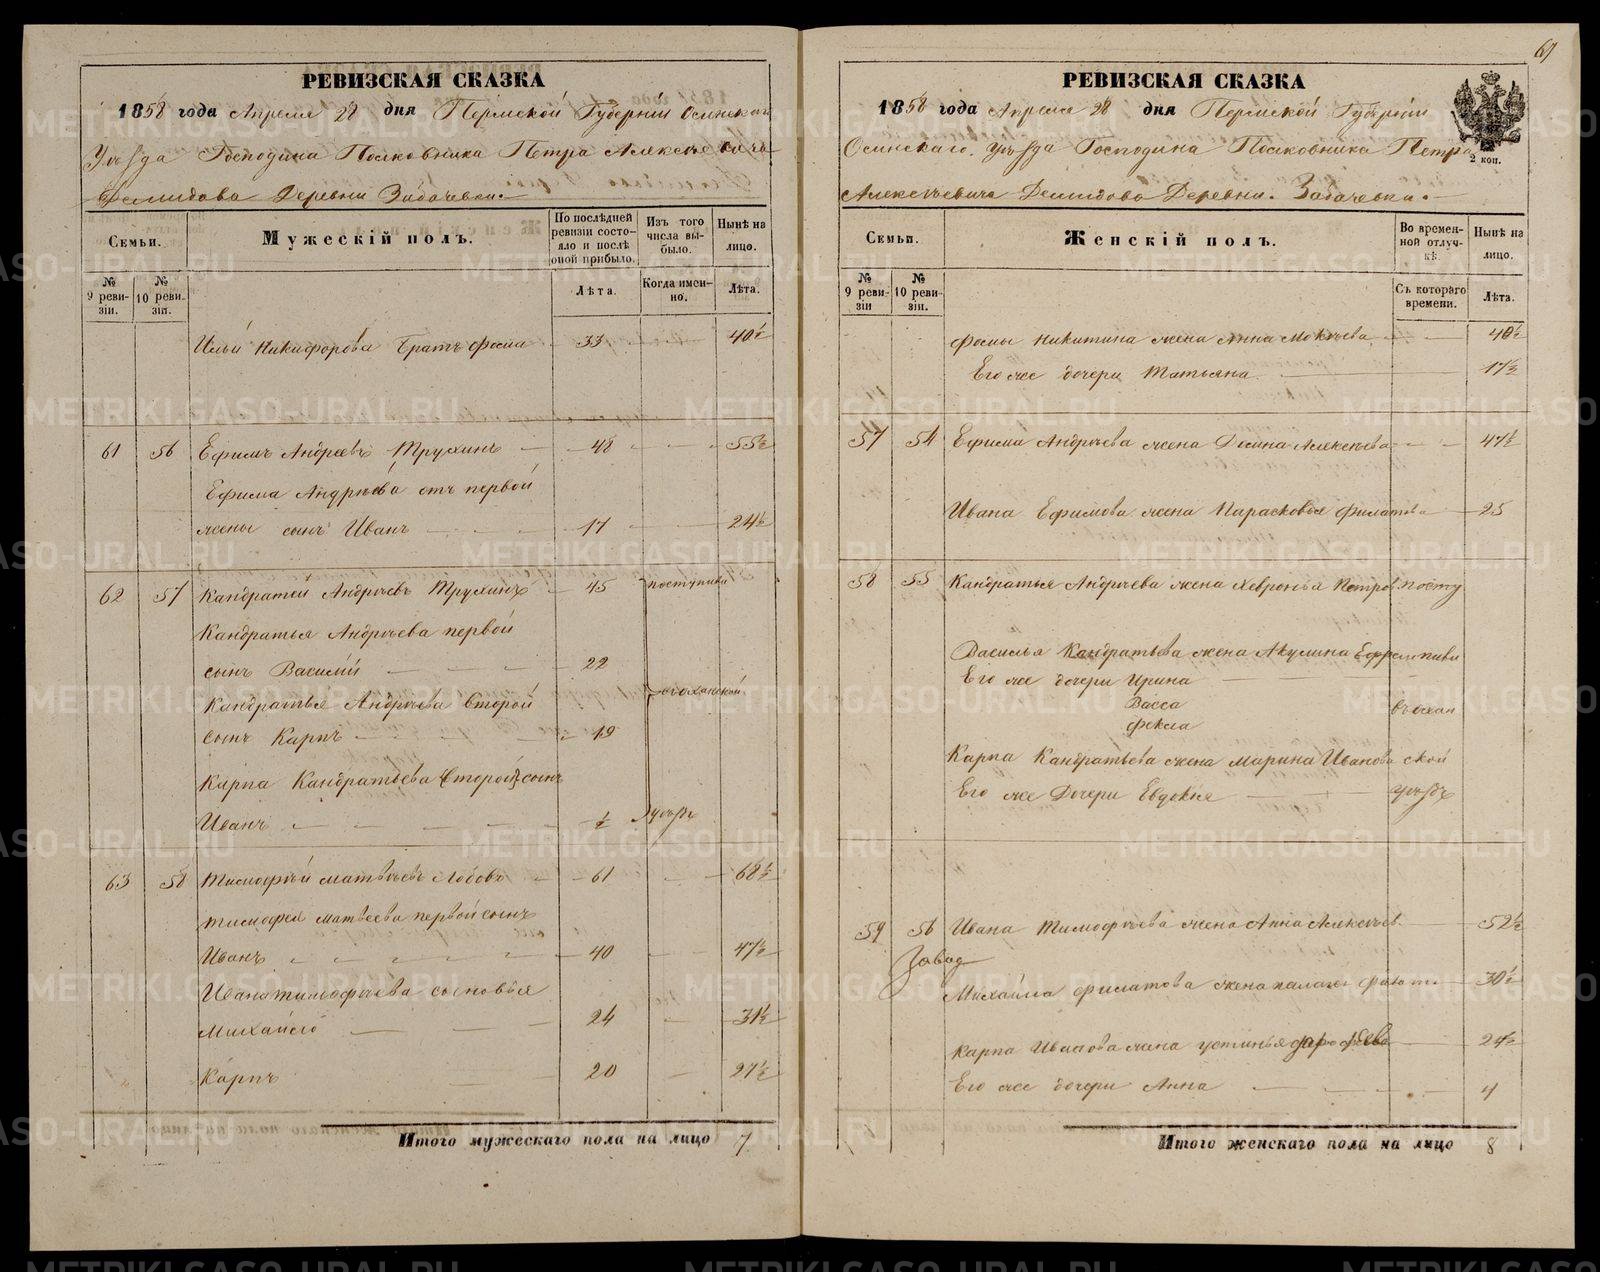 РЕВИЗСКАЯ СКАЗКА
1858 года Апреля 28 дня Пермской Губернiи Осинскаго
Уѣзда Господина Полковника Петра Алексѣевича
Демидова Деревни Забачевки.
Семьи.
Мужескiй полъ.
По послѣдней ревизiи состояло и послѣ оной прибыло.
Изъ того числа выбыло.
Нынѣ на лицо.
№ 9 ревизiи.
№ 10 ревизiи.
Лѣта.
Когда именно.
Лѣта.
Никифорова братъ Фома 33 40½
61 56 Ефимъ Андреевъ Трухинъ 48 55½
Ефима Андрѣева отъ первой
жены сынъ Иванъ 17 24½
62 57 Кандратей Андрѣевъ Трухинъ 45 поступили
Кандратья Андрѣева первой
сынъ Василiй 22
Кандратья Андрѣева второй
сынъ Карпъ 19
Карпа Кандратьева второй сынъ
Иванъ ½ уѣздъ
63 58 Тимофѣй Матвѣевъ Лобовъ 61 68½
Тимофея Матвеева первой сынъ
Иванъ 40 47½
Ивана Тимофѣева сыновья
Михайло 24 31½
Карпъ 20 27½
Итого мужескаго пола на лицо 7
РЕВИЗСКАЯ СКАЗКА
1858 года Апреля 28 дня Пермской Губернiи
Осинскаго Уѣзда Господина Полковника Петра
Алексѣевича Демидова Деревни Забачевки.
2 коп.
Семьи.
Женскiй полъ.
Во временной отлучкѣ.
Нынѣ на лицо.
№ 9 ревизiи
№ 10 ревизiи.
Съ котораго времени.
Лѣта.
Фомы Никитина жена Анна 40½
Его же дочери Татьяна 17½
57 54 Ефима Андрѣева жена Алексѣева 47½
Ивана Ефимова жена Парасковья Филатова 25
58 55 Кандратья Андрѣева жена Хевронья Петров посту
Василья Кандратьева жена Акулина пили
Его же дочери Ирина
Васса
Фекла
Карпа Кандратьева жена Марина Иванова ской
Его же Дочери Евдокiя уѣздъ
59 56 Ивана Тимофѣева жена Анна Алексѣев. 52½
Завод
Михайла Филатова жена 30½
Карпа Иванова жена Устинья 24½
Его же дочери Анна 4
Итого женскаго пола на лицо 8
METRIKI.GASO-URAL.RU